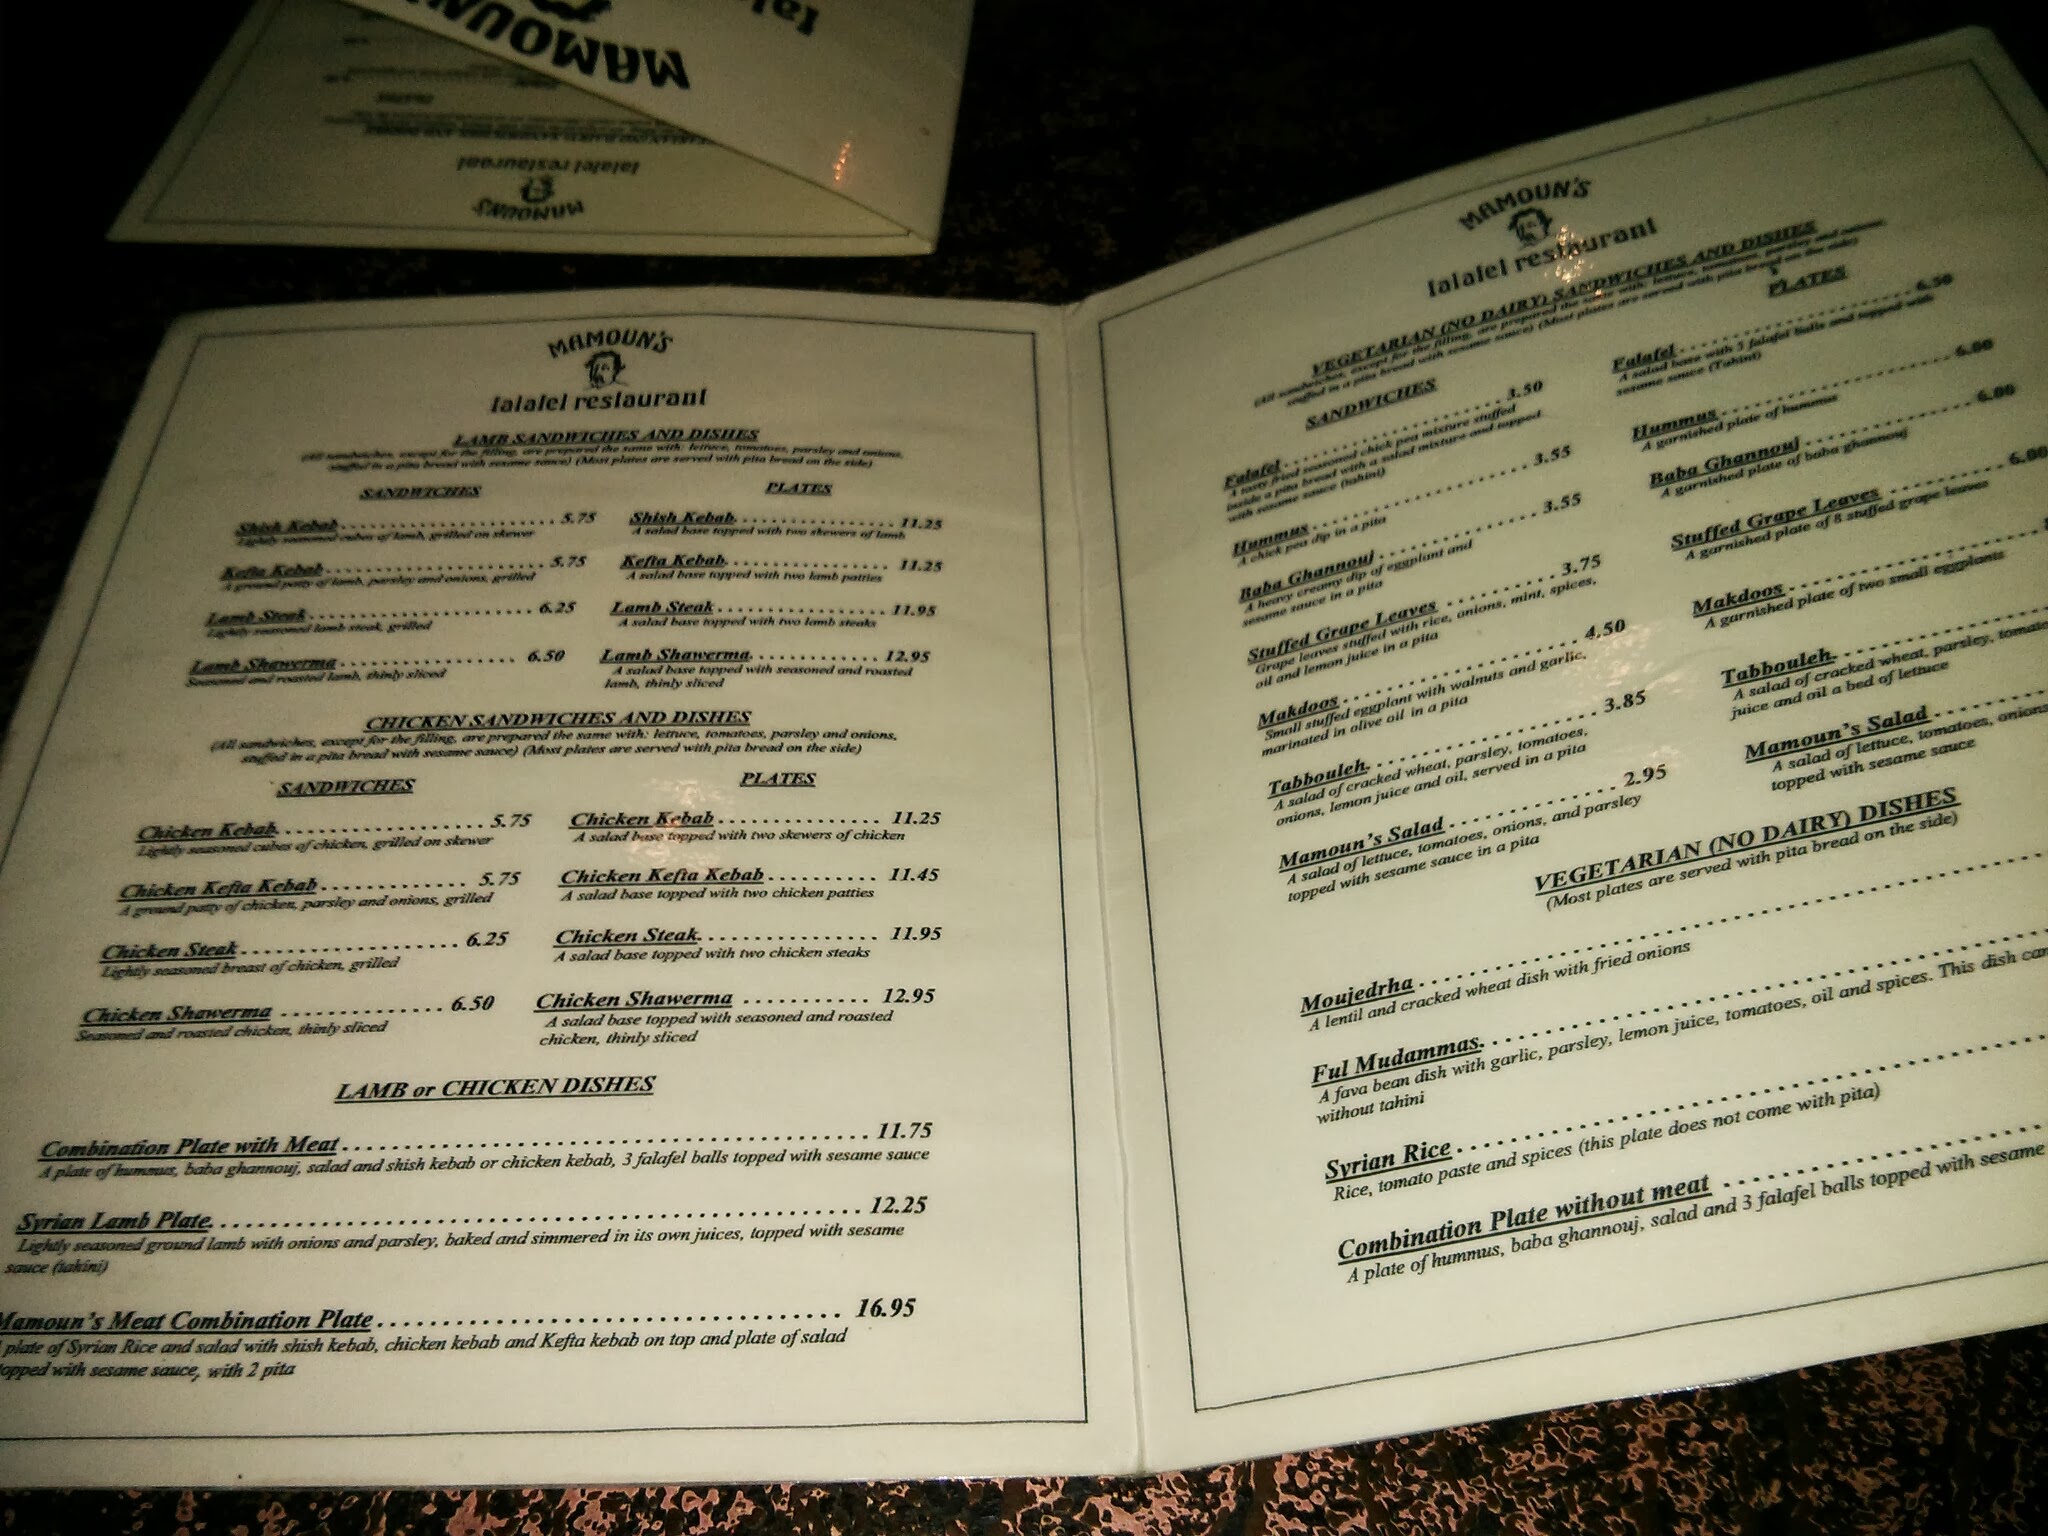 MAMOUN'S
falafel restaurant
MAMOUN'S
falafel restaurant
LAMB SANDWICHES AND DISHES
(All sandwiches, except for the filling, are prepared the same with: lettuce, tomatoes, parsley and onions,
stuffed in a pita bread with sesame sauce) (Most plates are served with pita bread on the side)
SANDWICHES PLATES
Shish Kebab 5.75 Shish Kebab 11.25
Lightly seasoned cubes of lamb, grilled on skewer A salad base topped with two skewers of lamb
Kefta Kebab 5.75 Kefta Kebab 11.25
A ground patty of lamb, parsley and onions, grilled A salad base topped with two lamb patties
Lamb Steak 6.25 Lamb Steak 11.95
Lightly seasoned lamb steak, grilled A salad base topped with two lamb steaks
Lamb Shawerma 6.50 Lamb Shawerma 12.95
Seasoned and roasted lamb, thinly sliced A salad base topped with seasoned and roasted
lamb, thinly sliced
CHICKEN SANDWICHES AND DISHES
(All sandwiches, except for the filling, are prepared the same with: lettuce, tomatoes, parsley and onions,
stuffed in a pita bread with sesame sauce) (Most plates are served with pita bread on the side)
SANDWICHES PLATES
Chicken Kebab 5.75 Chicken Kebab 11.25
Lightly seasoned cubes of chicken, grilled on skewer A salad base topped with two skewers of chicken
Chicken Kefta Kebab 5.75 Chicken Kefta Kebab 11.45
A ground patty of chicken, parsley and onions, grilled A salad base topped with two chicken patties
Chicken Steak 6.25 Chicken Steak 11.95
Lightly seasoned breast of chicken, grilled A salad base topped with two chicken steaks
Chicken Shawerma 6.50 Chicken Shawerma 12.95
Seasoned and roasted chicken, thinly sliced A salad base topped with seasoned and roasted
chicken, thinly sliced
LAMB or CHICKEN DISHES
Combination Plate with Meat 11.75
A plate of hummus, baba ghannouj, salad and shish kebab or chicken kebab, 3 falafel balls topped with sesame sauce
Syrian Lamb Plate 12.25
Lightly seasoned ground lamb with onions and parsley, baked and simmered in its own juices, topped with sesame
sauce (tahini)
Mamoun's Meat Combination Plate 16.95
plate of Syrian Rice and salad with shish kebab, chicken kebab and Kefta kebab on top and plate of salad
topped with sesame sauce, with 2 pita
MAMOUN'S
falafel restaurant
VEGETARIAN (NO DAIRY) SANDWICHES AND DISHES
(All sandwiches, except for the filling, are prepared the same with: lettuce, tomatoes, parsley and onions,
stuffed in a pita bread with sesame sauce) (Most plates are served with pita bread on the side)
SANDWICHES
Falafel 3.50
A tasty fried seasoned chick pea mixture stuffed
inside a pita bread with a salad mixture and topped
with sesame sauce (tahini)
Hummus 3.55
A chick pea dip in a pita
Baba Ghannouj 3.55
A heavy creamy dip of eggplant and
sesame sauce in a pita
Stuffed Grape Leaves 3.75
Grape leaves stuffed with rice, onions, mint, spices,
oil and lemon juice in a pita
Makdoos 4.50
Small stuffed eggplant with walnuts and garlic,
marinated in olive oil in a pita
Tabbouleh 3.85
A salad of cracked wheat, parsley, tomatoes,
onions, lemon juice and oil, served in a pita
Mamoun's Salad 2.95
A salad of lettuce, tomatoes, onions, and parsley
topped with sesame sauce in a pita
PLATES
Falafel 6.50
A salad base with 5 falafel balls and topped with
sesame sauce (Tahini)
Hummus 6.00
A garnished plate of hummus
Baba Ghannouj 6.00
A garnished plate of baba ghannouj
Stuffed Grape Leaves 6.00
A garnished plate of 8 stuffed grape leaves
Makdoos
A garnished plate of two small eggplants
Tabbouleh
A salad of cracked wheat, parsley, tomato
juice and oil a bed of lettuce
Mamoun's Salad
A salad of lettuce, tomatoes, onions
topped with sesame sauce
VEGETARIAN (NO DAIRY) DISHES
(Most plates are served with pita bread on the side)
Moujedrha
A lentil and cracked wheat dish with fried onions
Ful Mudammas
A fava bean dish with garlic, parsley, lemon juice, tomatoes, oil and spices. This dish can
without tahini
Syrian Rice
Rice, tomato paste and spices (this plate does not come with pita)
Combination Plate without meat
A plate of hummus, baba ghannouj, salad and 3 falafel balls topped with sesame